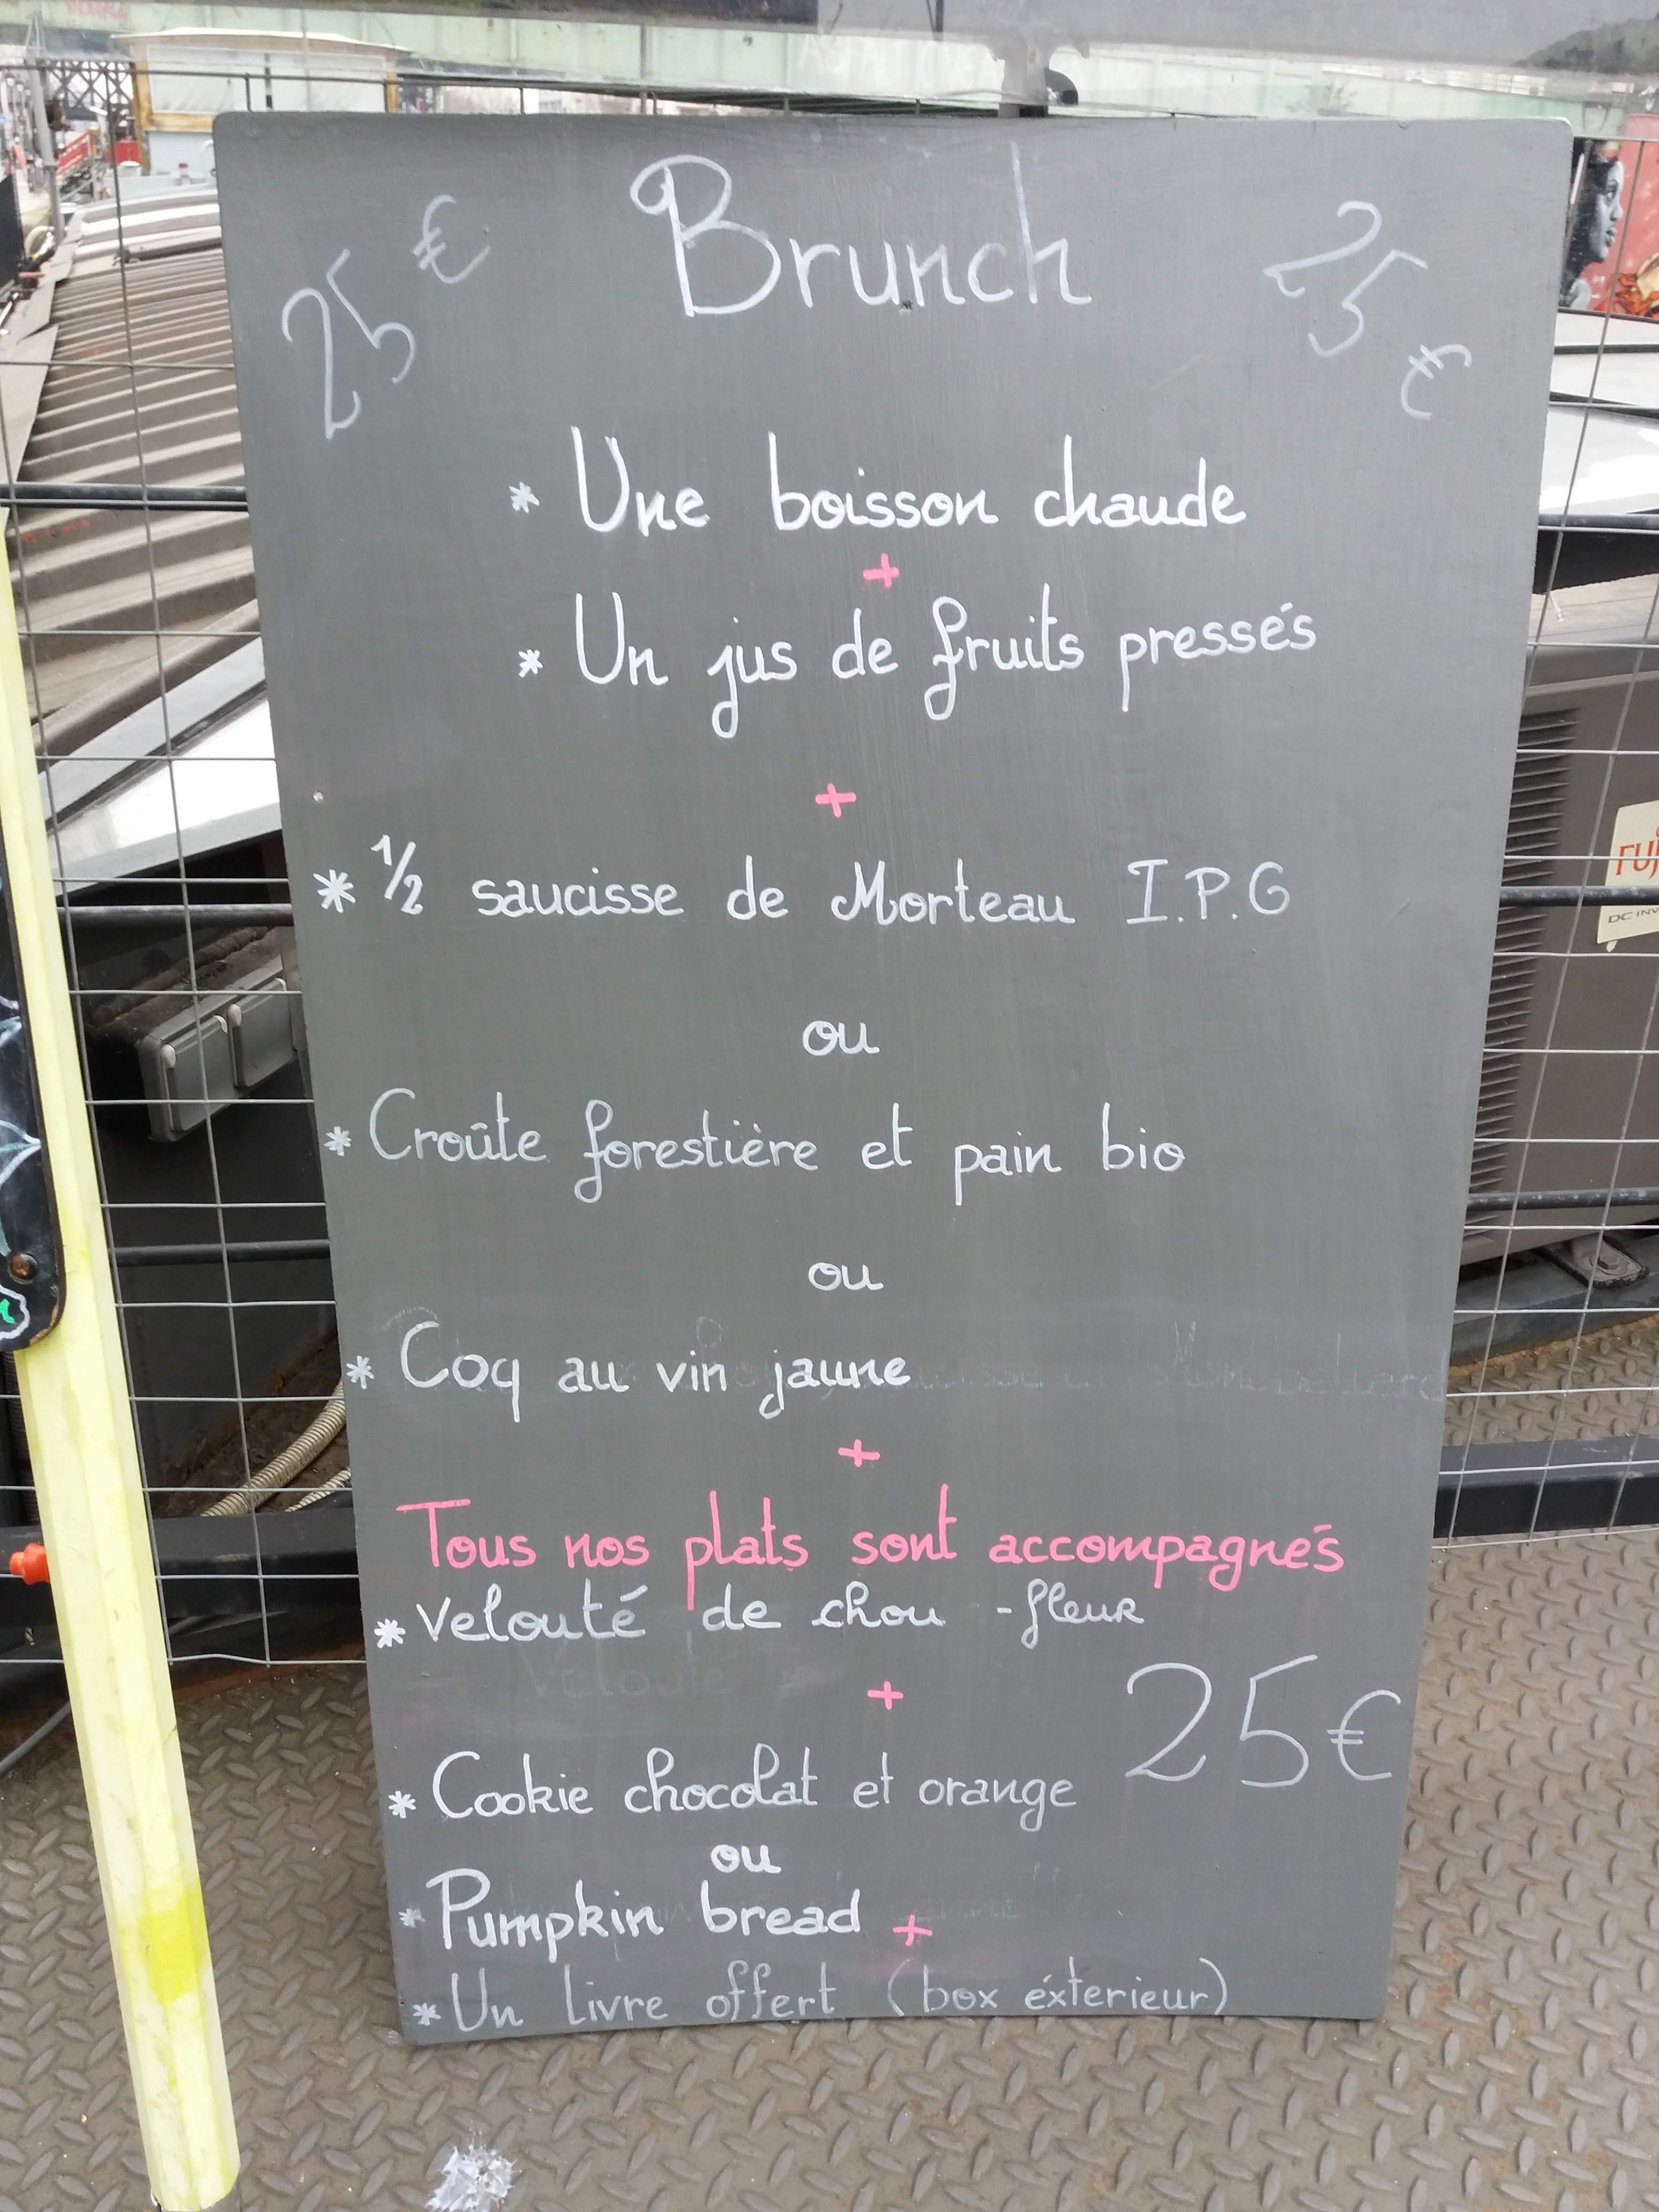 25 € Brunch 25 €
* Une boisson chaude
+
* Un jus de fruits pressés
+
* 1/2 saucisse de Morteau I.P.G
ou
* Croûte forestière et pain bio
ou
* Coq au vin jaune
+
Tous nos plats sont accompagnés
* Velouté de chou-fleur
+
25€
* Cookie chocolat et orange
ou
* Pumpkin bread +
* Un livre offert (box éxterieur)
DC INV